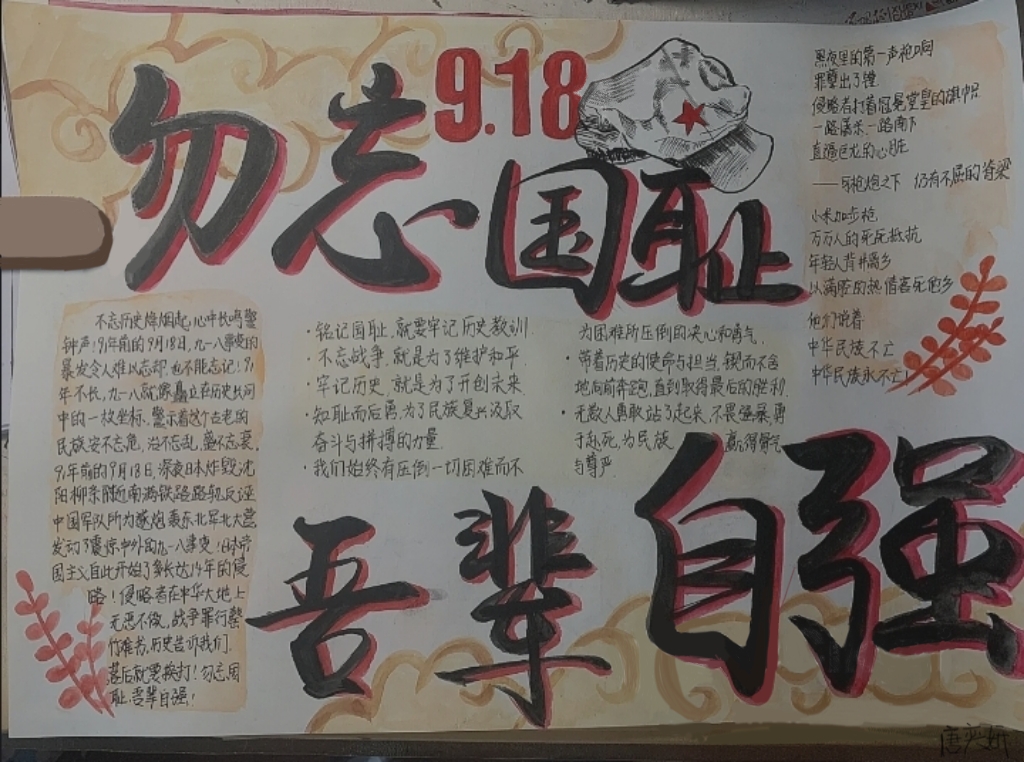 9.18
勿忘国耻
黑夜里的第一声枪响
罪孽出了膛
侵略者打着冠冕堂皇的旗帜
一路南下
直逼巨龙的心脏
枪炮之下 仍有不屈的脊梁
小米加步枪
万万人的死死抵抗
年轻人背井离乡
以满腔的热情客死他乡
他们饮着
中华民族不亡
中华民族永不亡
不忘历史烽烟起,心中长鸣警
钟声!91年前的9月18日,九一八事变的
暴发令人难以忘却,也不能忘记!91
年不长,九一八就像矗立在历史长河
中的一枚坐标,警示着这个古老的
民族安不忘危,治不忘乱,盛不忘衰.
91年前的9月18日,深夜日本炸毁沈
阳柳条附近南满铁路路轨反诬
中国军队所为,遂炮轰东北军北大营
发动了震惊中外的九一八事变!日本帝
国主义自此开始了长达14年的侵
略!侵略者在中华大地上
无恶不做,战争罪行罄
竹难书,历史告诉我们,
落后就要挨打!勿忘国
耻,吾辈自强!
·铭记国耻,就要牢记历史教训.
·不忘战争,就是为了维护和平.
·牢记历史,就是为了开创未来.
·知耻而后勇,为了民族复兴汲取
奋斗与拼搏的力量.
·我们始终有压倒一切困难而不
为困难所压倒的决心和勇气.
·带着历史的使命与担当,锲而不舍
地向前奔跑,直到取得最后的胜利.
·无数人勇敢站了起来,不畏强暴,勇
于赴死,为民族 赢得骨气
与尊严
吾辈自强